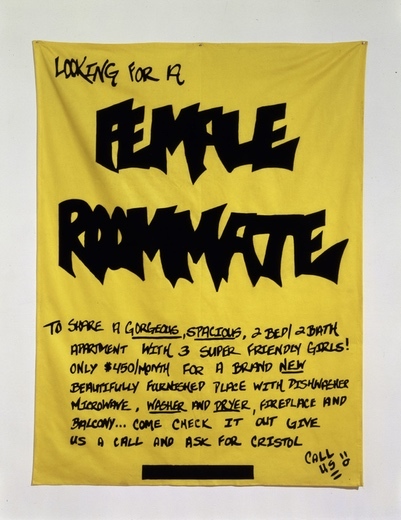 LOOKING FOR A
FEMALE
ROOMMATE
TO SHARE A GORGEOUS, SPACIOUS, 2 BED/2 BATH
APARTMENT WITH 3 SUPER FRIENDLY GIRLS!
ONLY $450/MONTH FOR A BRAND NEW
BEAUTIFULLY FURNISHED PLACE WITH DISHWASHER
MICROWAVE, WASHER AND DRYER, FIREPLACE AND
BALCONY... COME CHECK IT OUT GIVE
US A CALL AND ASK FOR CRISTOL
CALL
US!!